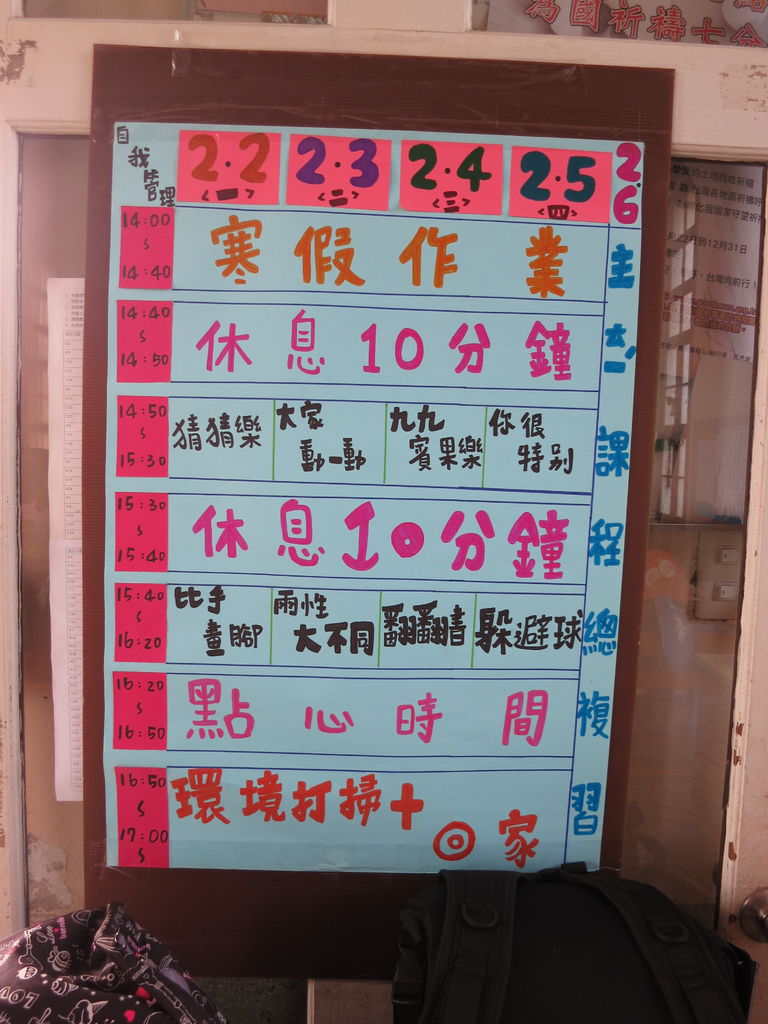 為國祈禱七分
自我管理
2.2 2.3 2.4 2.5 2.6
<一> <二> <三> <四>
14:00 ~ 14:40 寒假作業
14:40 ~ 14:50 休息10分鐘
14:50 ~ 15:30 猜猜樂 大家動一動 九九賓果樂 你很特別
15:30 ~ 15:40 休息10分鐘
15:40 ~ 16:20 比手畫腳 兩性大不同 翻翻書 躲避球
16:20 ~ 16:50 點心時間
16:50 ~ 17:00 ~ 環境打掃+◎家
主
課程總複習
的土地百姓祈福
為台灣各地區祈禱
化我國家守望祈
月22日到12月31日
台灣向前行！